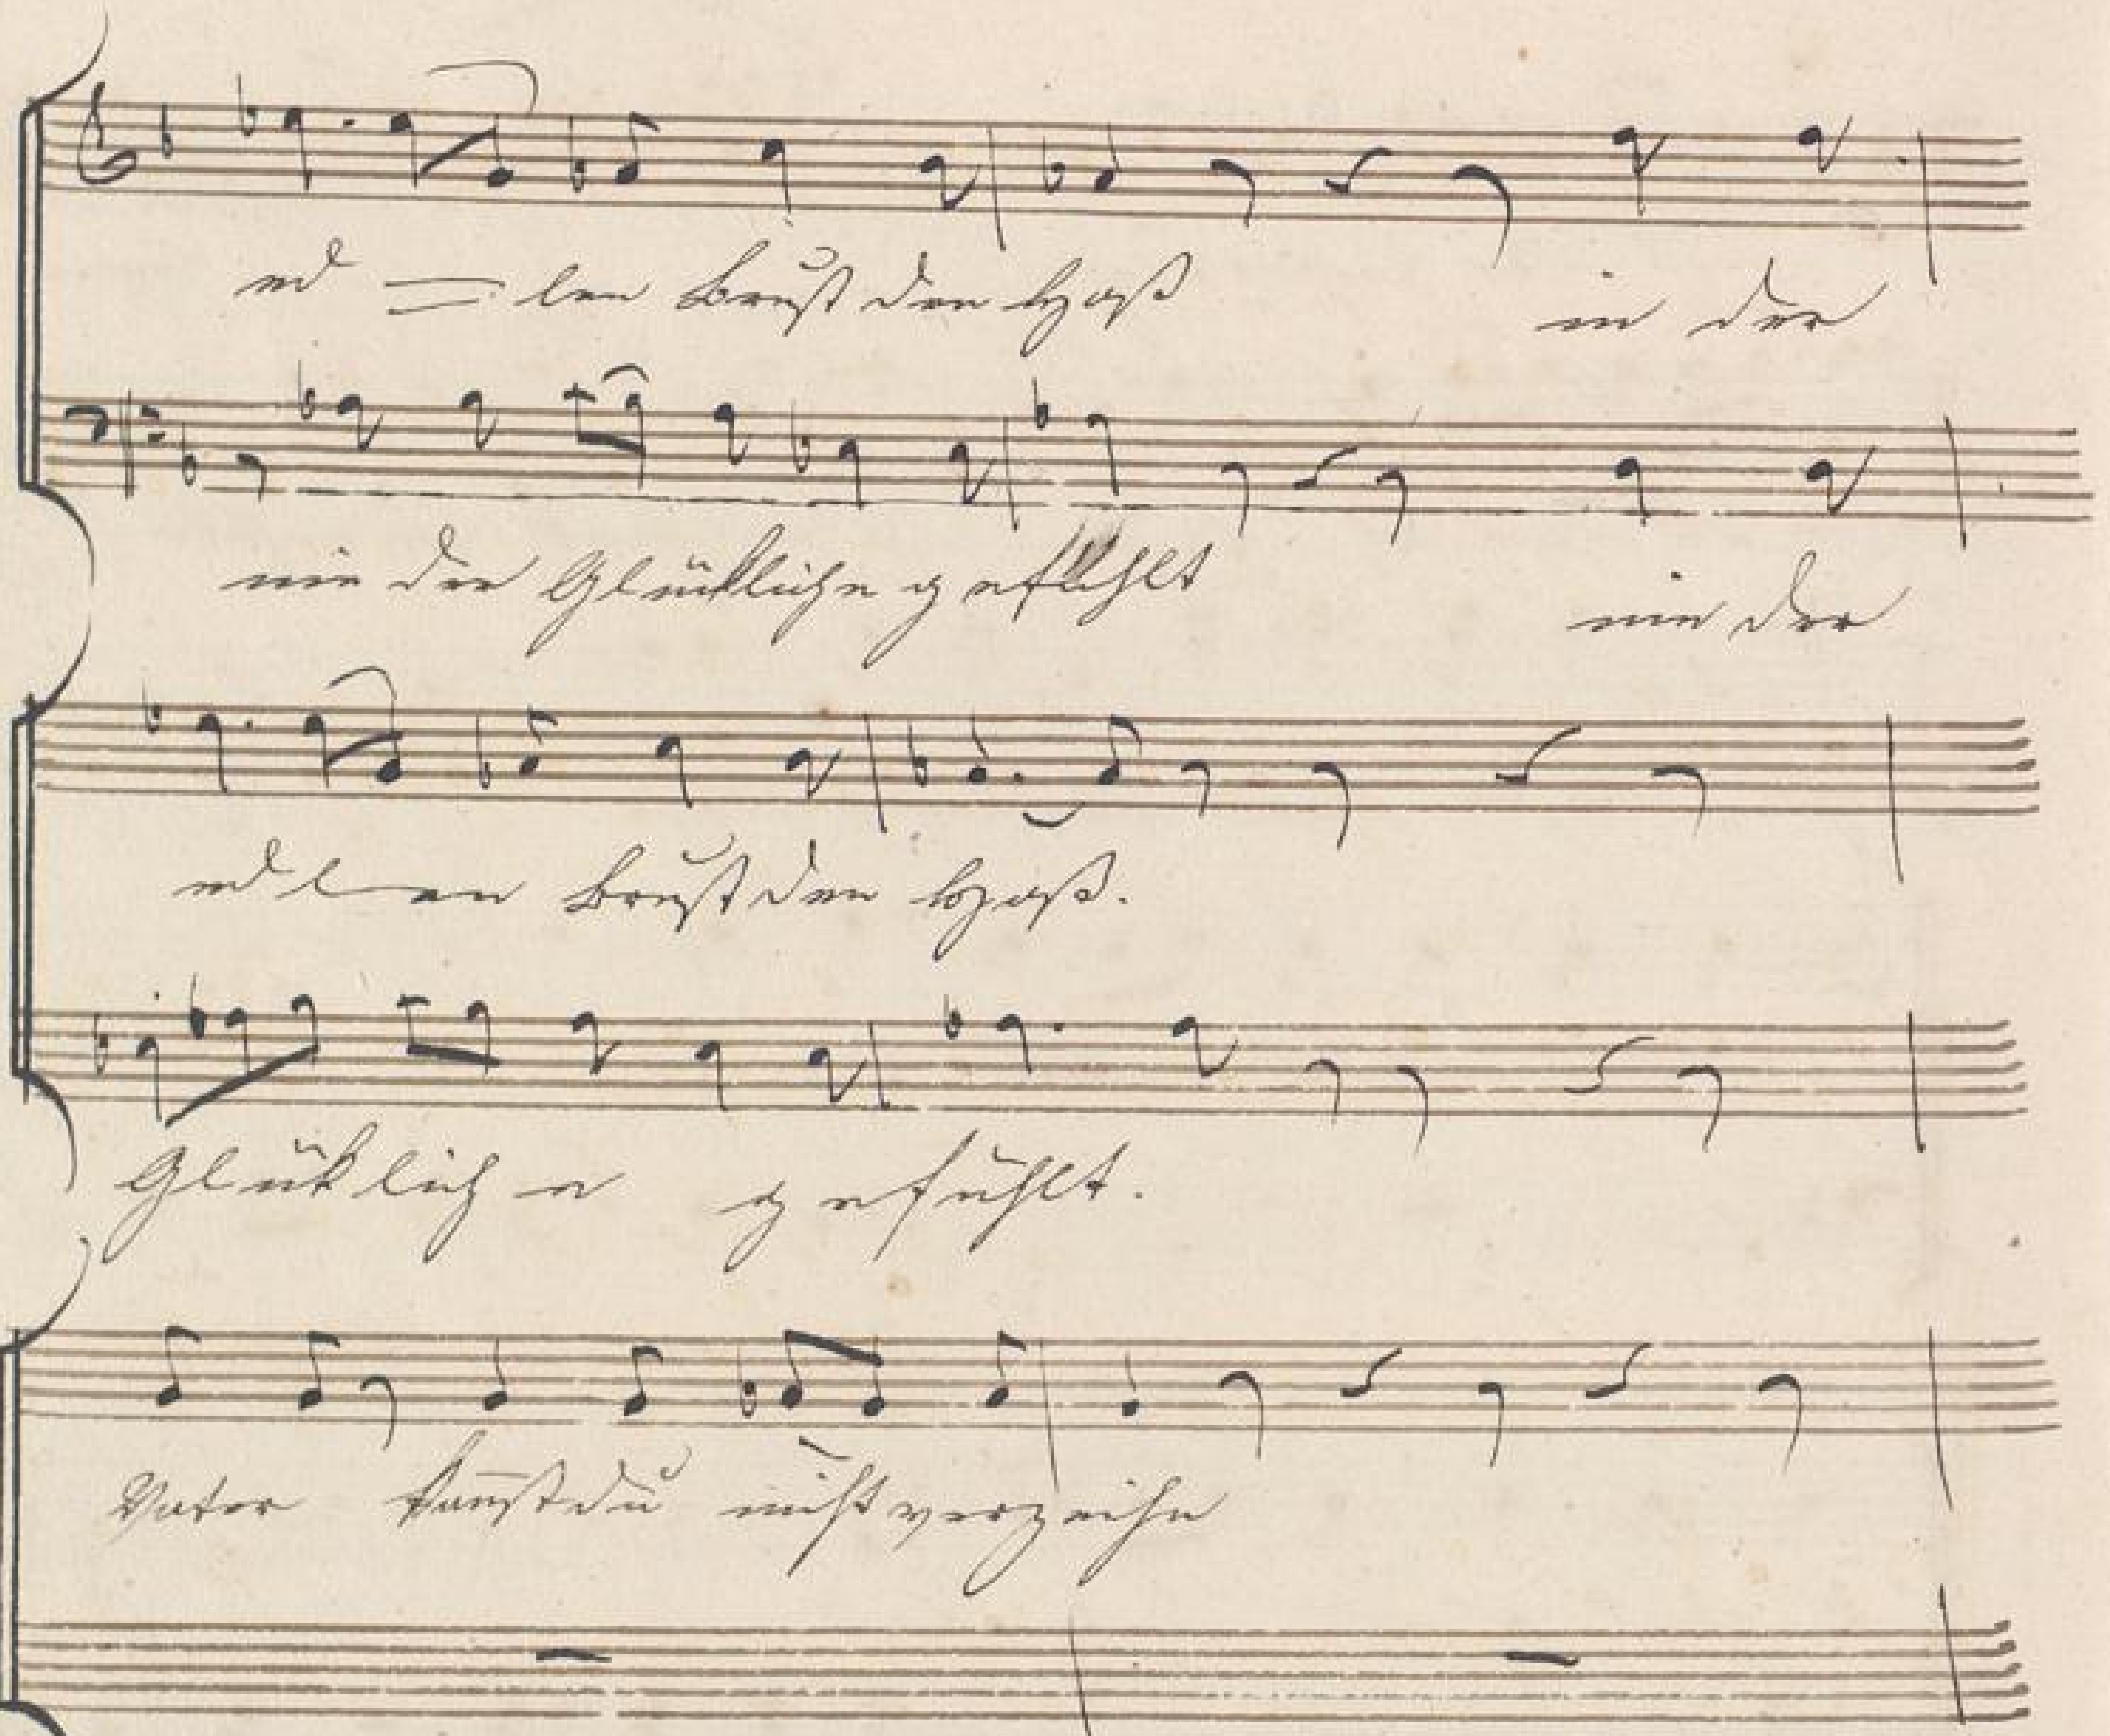 ed = len Brust den Haß in der
nie der Glückliche gefühlt nie der
edlen Brust den Haß.
Glükliche gefühlt.
Vater kan̅st du nicht verzeihn